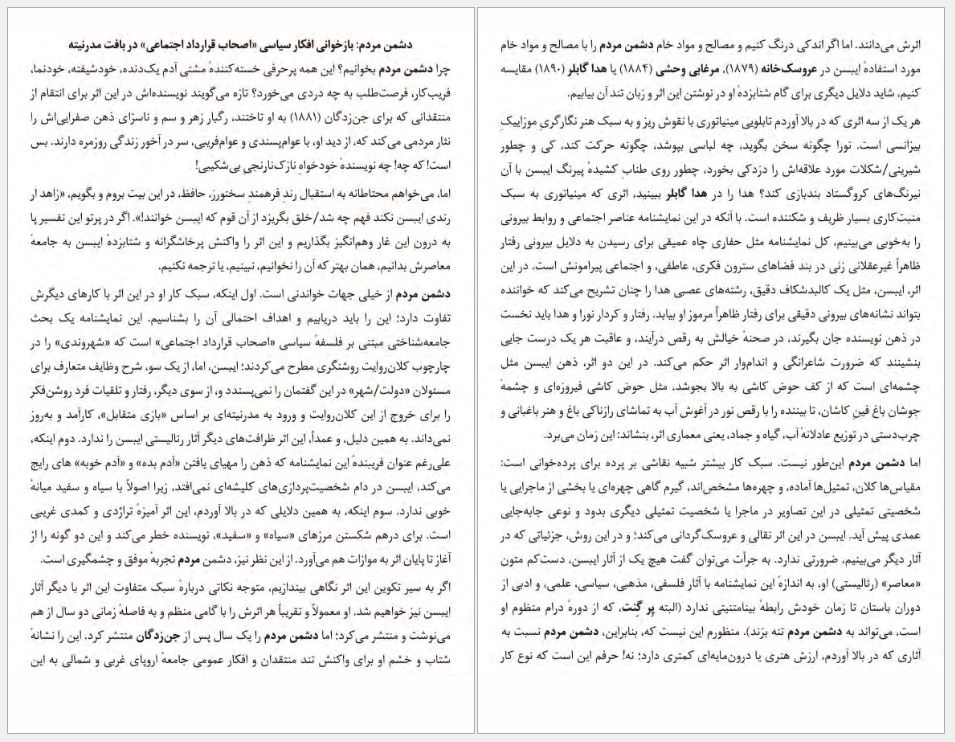 دشمن مردم: بازخوانی افکار سیاسی «اصحاب قرارداد اجتماعی» در بافت مدرنیته
چرا دشمن مردم بخوانیم؟ این همه پرحرفی خسته‌کنندهٔ مشتی آدم یک‌دنده، خودشیفته، خودنما،
فریب‌کار، فرصت‌طلب به چه دردی می‌خورد؟ تازه می‌گویند نویسنده‌اش در این اثر برای انتقام از
منتقدانی که برای جن‌زدگان (۱۸۸۱) به او تاختند، رگبار زهر و سم و ناسزای ذهن صفرایی‌اش را
نثار مردمی می‌کند که، از دید او، با عوام‌پسندی و عوام‌فریبی، سر در آخور زندگی روزمره دارند. بس
است! که چه! چه نویسندهٔ خودخواهِ نازک‌نارنجیِ بی‌شکیبی!
اما، می‌خواهم محتاطانه به استقبال رندِ فرهمندِ سخنورز، حافظ، در این بیت بروم و بگویم، «زاهد ار
رندی ایبسن نکند فهم چه شد/خلق بگریزد از آن قوم که ایبسن خوانند!». اگر در پرتو این تفسیر پا
به درون این غار وهم‌انگیز بگذاریم و این اثر را واکنش پرخاشگرانه و شتابزدهٔ ایبسن به جامعهٔ
معاصرش بدانیم، همان بهتر که آن را نخوانیم، نبینیم، یا ترجمه نکنیم.
دشمن مردم از خیلی جهات خواندنی است. اول اینکه، سبک کار او در این اثر با کارهای دیگرش
تفاوت دارد؛ این را باید دریابیم و اهداف احتمالی آن را بشناسیم. این نمایشنامه یک بحث
جامعه‌شناختی مبتنی بر فلسفهٔ سیاسی «اصحاب قرارداد اجتماعی» است که «شهروندی» را در
چارچوب کلان‌روایت روشنگری مطرح می‌کردند؛ ایبسن، اما، از یک سو، شرح وظایف متعارف برای
مسئولان «دولت/شهر» را در این گفتمان را نمی‌پسندد و، از سوی دیگر، رفتار و تلقیات فرد روشن‌فکر
را برای خروج از این کلان‌روایت و ورود به مدرنیته‌ای بر اساس «بازی متقابل»، کارآمد و به‌روز
نمی‌داند. به همین دلیل، و عمداً، این اثر ظرافت‌های دیگر آثار رئالیستی ایبسن را ندارد. دوم اینکه،
علی‌رغم عنوان فریبندهٔ این نمایشنامه که ذهن را مهیای یافتن «آدم بده» و «آدم خوبه» های رایج
می‌کند، ایبسن در دام شخصیت‌پردازی‌های کلیشه‌ای نمی‌افتد، زیرا اصولاً با سیاه و سفید میانهٔ
خوبی ندارد. سوم اینکه، به همین دلایلی که در بالا آوردم، این اثر آمیزهٔ تراژدی و کمدی غریبی
است. برای درهم شکستن مرزهای «سیاه» و «سفید»، نویسنده خطر می‌کند و این دو گونه را از
آغاز تا پایان اثر به موازات هم می‌آورد. از این نظر نیز، دشمن مردم تجربهٔ موفق و چشمگیری است.
اگر به سیر تکوین این اثر نگاهی بیندازیم، متوجه نکاتی دربارهٔ سبک متفاوت این اثر با دیگر آثار
ایبسن نیز خواهیم شد. او معمولاً و تقریباً هر اثرش را با گامی منظم و به فاصلهٔ زمانی دو سال از هم
می‌نوشت و منتشر می‌کرد؛ اما دشمن مردم را یک سال پس از جن‌زدگان منتشر کرد. این را نشانهٔ
شتاب و خشم او برای واکنش تند منتقدان و افکار عمومی جامعهٔ اروپای غربی و شمالی به این
اثرش می‌دانند. اما اگر اندکی درنگ کنیم و مصالح و مواد خام دشمن مردم را با مصالح و مواد خام
مورد استفادهٔ ایبسن در عروسک‌خانه (۱۸۷۹)، مرغابی وحشی (۱۸۸۴) یا هدا گابلر (۱۸۹۰) مقایسه
کنیم، شاید دلایل دیگری برای گام شتابزدهٔ او در نوشتن این اثر و زبان تند آن بیابیم.
هر یک از سه اثری که در بالا آوردم تابلویی مینیاتوری با نقوش ریز و به سبک هنر نگارگریِ موزاییکِ
بیزانسی است. نورا چگونه سخن بگوید، چه لباسی بپوشد، چگونه حرکت کند، کی و چطور
شیرینی/شکلات مورد علاقه‌اش را دزدکی بخورد، چطور روی طنابِ کشیدهٔ پیرنگ ایبسن با آن
نیرنگ‌های کروگستاد بندبازی کند؟ هدا را در هدا گابلر ببینید، اثری که مینیاتوری به سبک
منبت‌کاری بسیار ظریف و شکننده است. با آنکه در این نمایشنامه عناصر اجتماعی و روابط بیرونی
را به‌خوبی می‌بینیم، کل نمایشنامه مثل حفاری چاه عمیقی برای رسیدن به دلایل بیرونی رفتار
ظاهراً غیرعقلانی زنی در بند فضاهای سترون فکری، عاطفی، و اجتماعی پیرامونش است. در این
اثر، ایبسن، مثل یک کالبدشکاف دقیق، رشته‌های عصبی هدا را چنان تشریح می‌کند که خواننده
بتواند نشانه‌های بیرونی دقیقی برای رفتار ظاهراً مرموز او بیابد. رفتار و کردار نورا و هدا باید نخست
در ذهن نویسنده جان بگیرند، در صحنهٔ خیالش به رقص درآیند، و عاقبت هر یک درست جایی
بنشینند که ضرورت شاعرانگی و اندام‌وار اثر حکم می‌کند. در این دو اثر، ذهن ایبسن مثل
چشمه‌ای است که از کف حوض کاشی به بالا بجوشد، مثل حوض کاشی فیروزه‌ای و چشمهٔ
جوشان باغ فین کاشان، تا بیننده را با رقص نور در آغوش آب به تماشای رازناکی باغ و هنر باغبانی و
چرب‌دستی در توزیع عادلانهٔ آب، گیاه و جماد، یعنی معماری اثر، بنشاند: این زمان می‌برد.
اما دشمن مردم این‌طور نیست. سبک کار بیشتر شبیه نقاشی بر پرده برای پرده‌خوانی است:
مقیاس‌ها کلان، تمثیل‌ها آماده، و چهره‌ها مشخص‌اند، گیرم گاهی چهره‌ای یا بخشی از ماجرایی یا
شخصیتی تمثیلی در این تصاویر در ماجرا یا شخصیت تمثیلی دیگری بدود و نوعی جابه‌جایی
عمدی پیش آید. ایبسن در این اثر نقالی و عروسک‌گردانی می‌کند؛ و در این روش، جزئیاتی که در
آثار دیگر می‌بینیم، ضرورتی ندارد. به جرأت می‌توان گفت هیچ یک از آثار ایبسن، دست‌کم متون
«معاصر» (رئالیستی) او، به اندازهٔ این نمایشنامه با آثار فلسفی، مذهبی، سیاسی، علمی، و ادبی از
دوران باستان تا زمان خودش رابطهٔ بینامتنیتی ندارد (البته پِر گنت، که از دورهٔ درام منظوم او
است، می‌تواند به دشمن مردم تنه بزند). منظورم این نیست که، بنابراین، دشمن مردم نسبت به
آثاری که در بالا آوردم، ارزش هنری یا درون‌مایه‌ای کمتری دارد؛ نه! حرفم این است که نوع کار